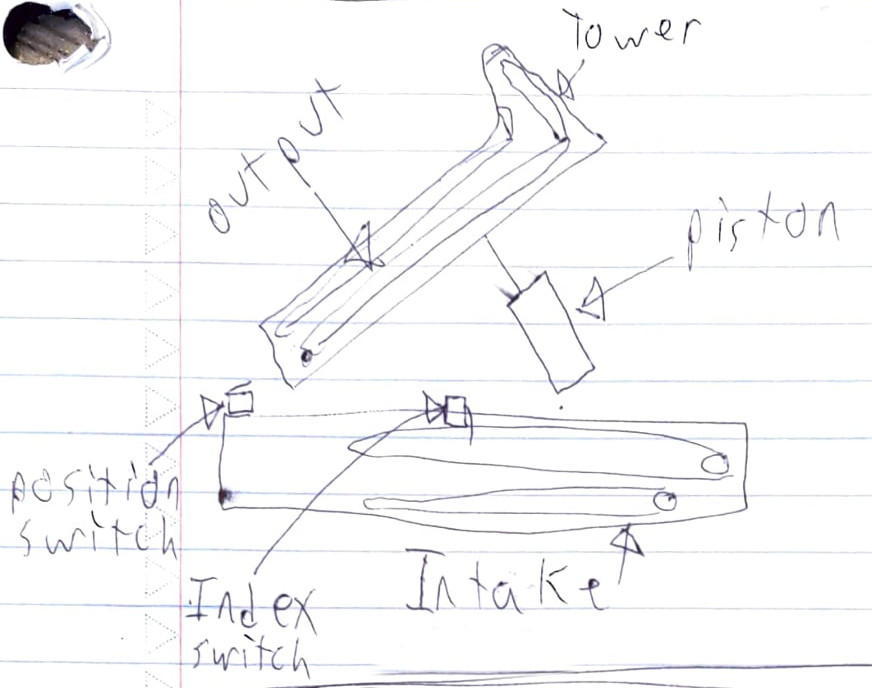 Tower
output
piston
position
switch
Index
switch
Intake